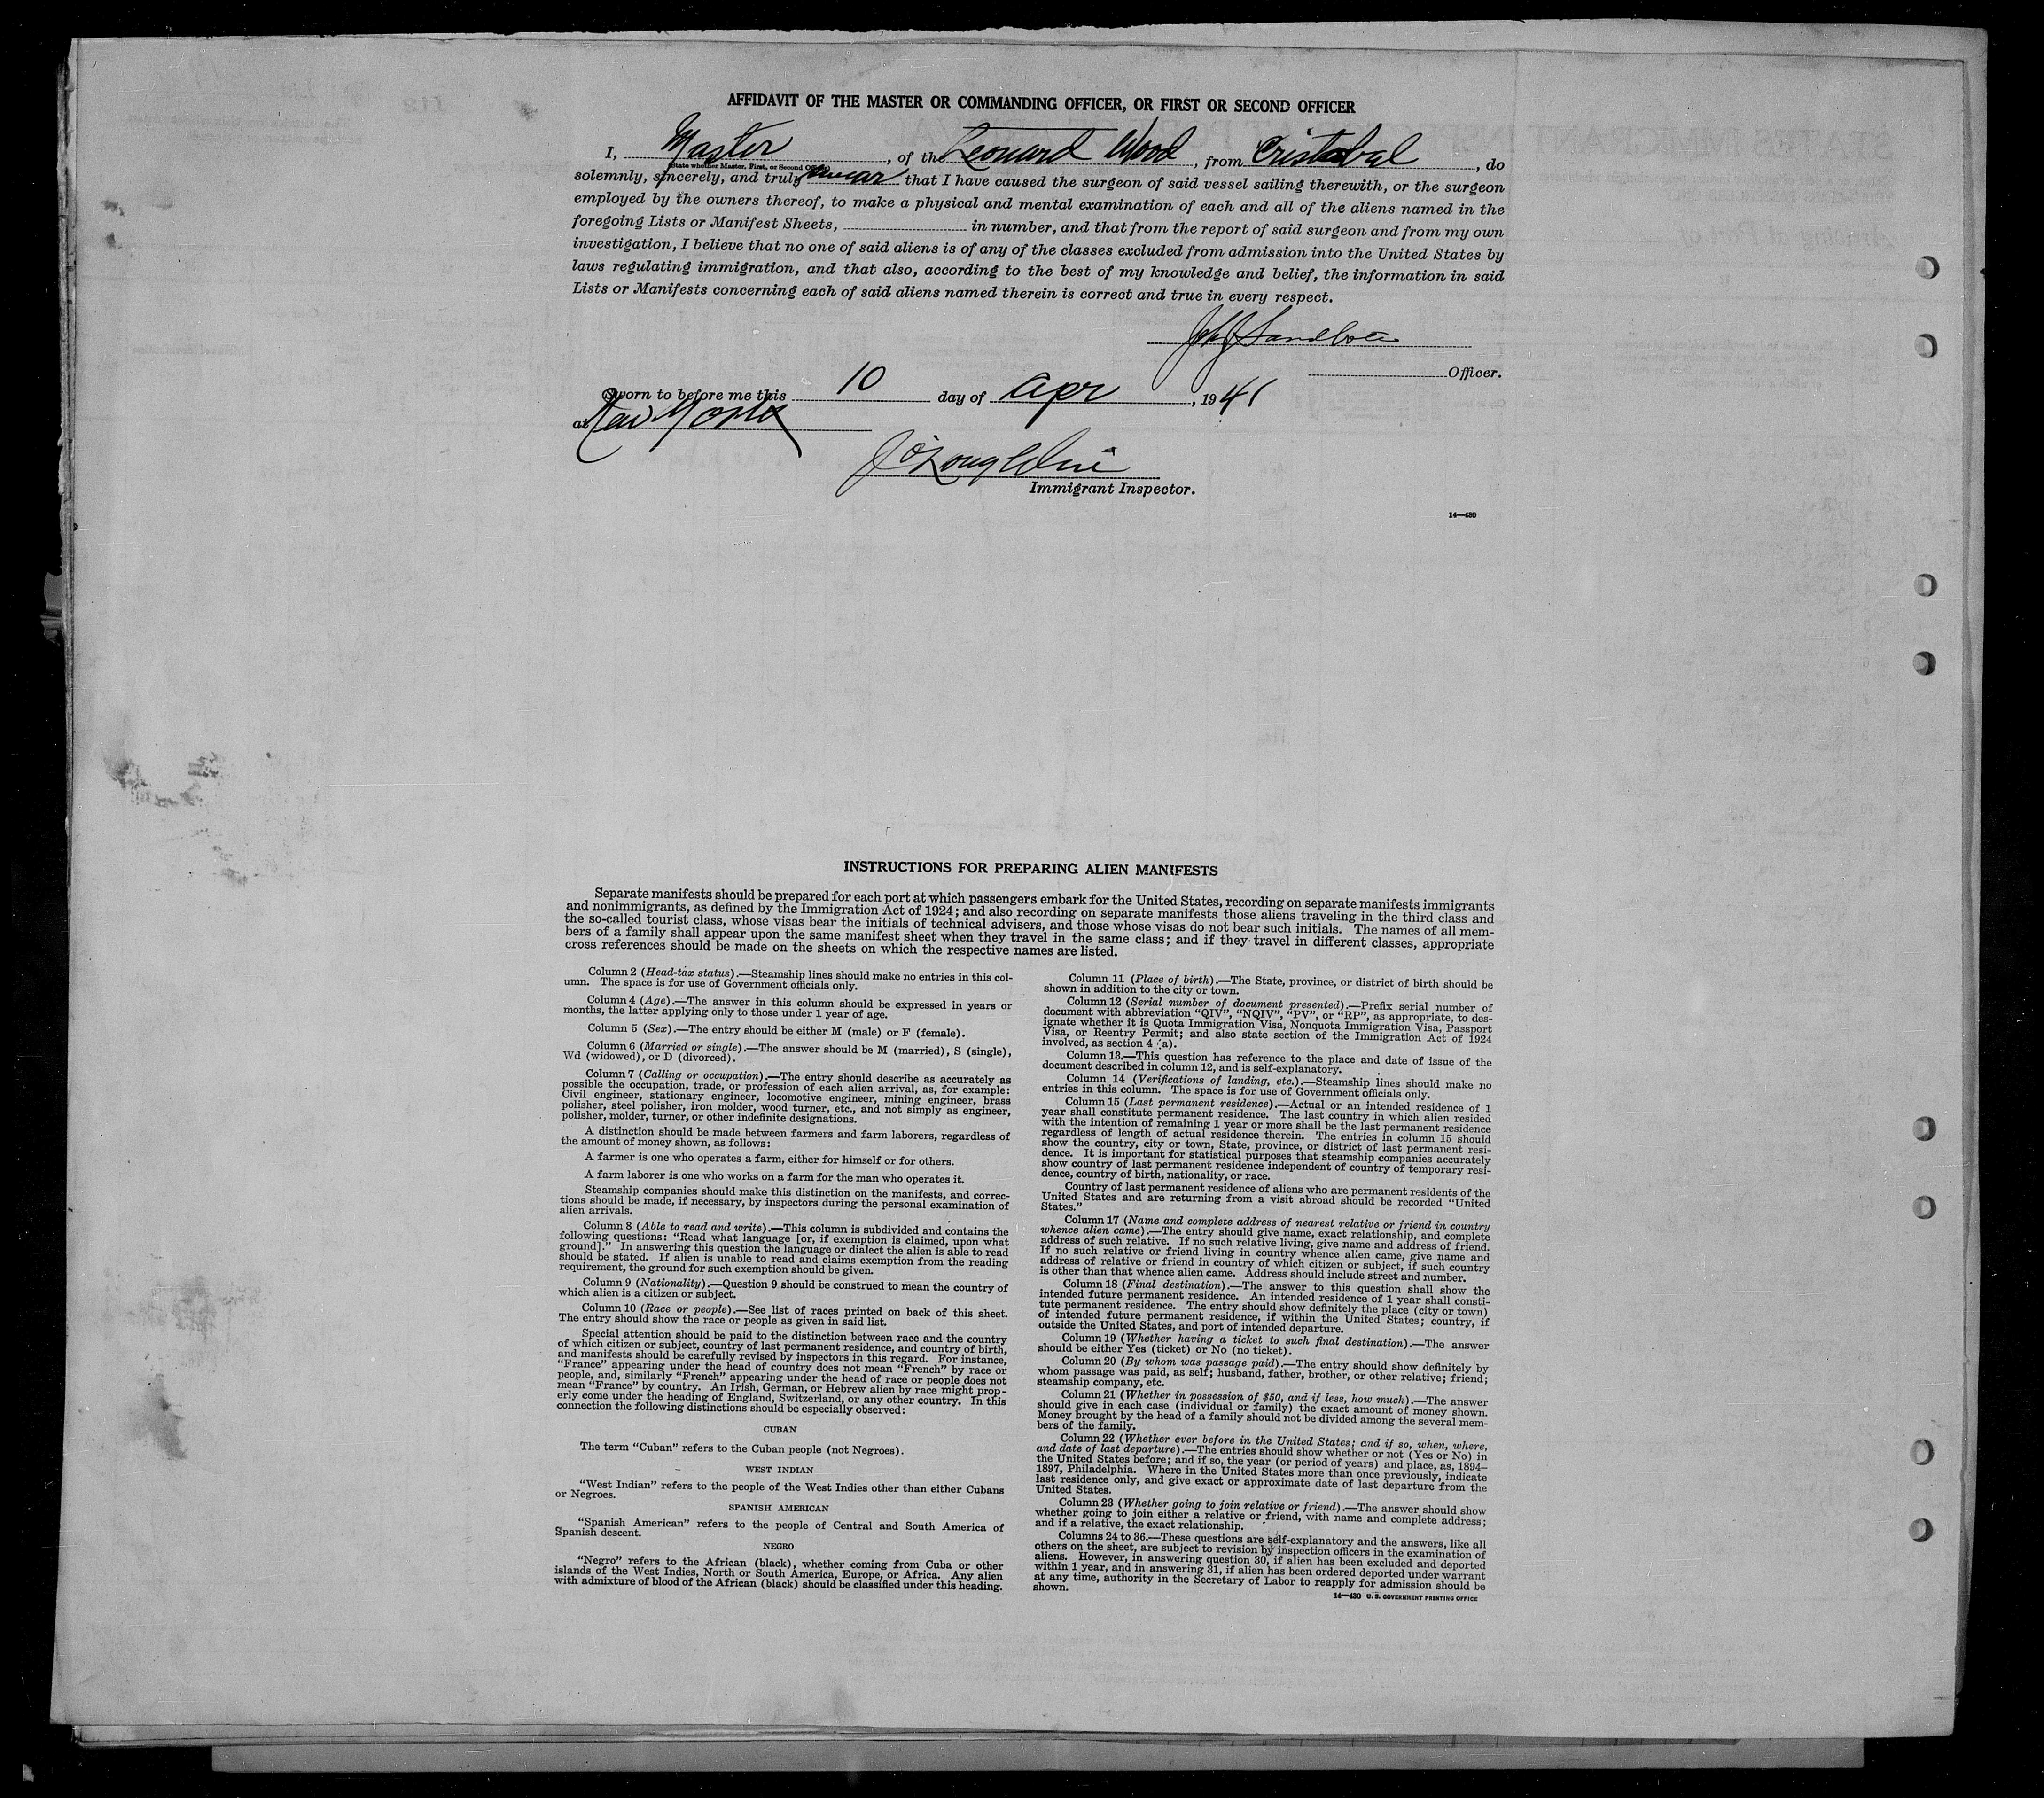 AFFIDAVIT OF THE MASTER OR COMMANDING OFFICER, OR FIRST OR SECOND OFFICER
I, Master, of the Leonard Wood, from Cristobal, do
(State whether Master, First, or Second Officer)
solemnly, sincerely, and truly swear that I have caused the surgeon of said vessel sailing therewith, or the surgeon
employed by the owners thereof, to make a physical and mental examination of each and all of the aliens named in the
foregoing Lists or Manifest Sheets, in number, and that from the report of said surgeon and from my own
investigation, I believe that no one of said aliens is of any of the classes excluded from admission into the United States by
laws regulating immigration, and that also, according to the best of my knowledge and belief, the information in said
Lists or Manifests concerning each of said aliens named therein is correct and true in every respect.
Officer.
Sworn to before me this 10 day of Apr, 1941
at New York
Immigrant Inspector.
14—430
INSTRUCTIONS FOR PREPARING ALIEN MANIFESTS
Separate manifests should be prepared for each port at which passengers embark for the United States, recording on separate manifests immigrants
and nonimmigrants, as defined by the Immigration Act of 1924; and also recording on separate manifests those aliens traveling in the third class and
the so-called tourist class, whose visas bear the initials of technical advisers, and those whose visas do not bear such initials. The names of all mem-
bers of a family shall appear upon the same manifest sheet when they travel in the same class; and if they travel in different classes, appropriate
cross references should be made on the sheets on which the respective names are listed.
Column 2 (Head-tax status).—Steamship lines should make no entries in this col-
umn. The space is for use of Government officials only.
Column 4 (Age).—The answer in this column should be expressed in years or
months, the latter applying only to those under 1 year of age.
Column 5 (Sex).—The entry should be either M (male) or F (female).
Column 6 (Married or single).—The answer should be M (married), S (single),
Wd (widowed), or D (divorced).
Column 7 (Calling or occupation).—The entry should describe as accurately as
possible the occupation, trade, or profession of each alien arrival, as, for example:
Civil engineer, stationary engineer, locomotive engineer, mining engineer, brass
polisher, steel polisher, iron molder, wood turner, etc., and not simply as engineer,
polisher, molder, turner, or other indefinite designations.
A distinction should be made between farmers and farm laborers, regardless of
the amount of money shown, as follows:
A farmer is one who operates a farm, either for himself or for others.
A farm laborer is one who works on a farm for the man who operates it.
Steamship companies should make this distinction on the manifests, and correc-
tions should be made, if necessary, by inspectors during the personal examination of
alien arrivals.
Column 8 (Able to read and write).—This column is subdivided and contains the
following questions: "Read what language [or, if exemption is claimed, upon what
ground]." In answering this question the language or dialect the alien is able to read
should be stated. If alien is unable to read and claims exemption from the reading
requirement, the ground for such exemption should be given.
Column 9 (Nationality).—Question 9 should be construed to mean the country of
which alien is a citizen or subject.
Column 10 (Race or people).—See list of races printed on back of this sheet.
The entry should show the race or people as given in said list.
Special attention should be paid to the distinction between race and the country
of which citizen or subject, country of last permanent residence, and country of birth,
and manifests should be carefully revised by inspectors in this regard. For instance,
"France" appearing under the head of country does not mean "French" by race or
people, and, similarly "French" appearing under the head of race or people does not
mean "France" by country. An Irish, German, or Hebrew alien by race might prop-
erly come under the heading of England, Switzerland, or any other country. In this
connection the following distinctions should be especially observed:
CUBAN
The term "Cuban" refers to the Cuban people (not Negroes).
WEST INDIAN
"West Indian" refers to the people of the West Indies other than either Cubans
or Negroes.
SPANISH AMERICAN
"Spanish American" refers to the people of Central and South America of
Spanish descent.
NEGRO
"Negro" refers to the African (black), whether coming from Cuba or other
islands of the West Indies, North or South America, Europe, or Africa. Any alien
with admixture of blood of the African (black) should be classified under this heading.
Column 11 (Place of birth).—The State, province, or district of birth should be
shown in addition to the city or town.
Column 12 (Serial number of document presented).—Prefix serial number of
document with abbreviation "QIV", "NQIV", "PV", or "RP", as appropriate, to des-
ignate whether it is Quota Immigration Visa, Nonquota Immigration Visa, Passport
Visa, or Reentry Permit; and also state section of the Immigration Act of 1924
involved, as section 4 (a).
Column 13.—This question has reference to the place and date of issue of the
document described in column 12, and is self-explanatory.
Column 14 (Verifications of landing, etc.).—Steamship lines should make no
entries in this column. The space is for use of Government officials only.
Column 15 (Last permanent residence).—Actual or an intended residence of 1
year shall constitute permanent residence. The last country in which alien resided
with the intention of remaining 1 year or more shall be the last permanent residence
regardless of length of actual residence therein. The entries in column 15 should
show the country, city or town, State, province, or district of last permanent resi-
dence. It is important for statistical purposes that steamship companies accurately
show country of last permanent residence independent of country of temporary resi-
dence, country of birth, nationality, or race.
Country of last permanent residence of aliens who are permanent residents of the
United States and are returning from a visit abroad should be recorded "United
States."
Column 17 (Name and complete address of nearest relative or friend in country
whence alien came).—The entry should give name, exact relationship, and complete
address of such relative. If no such relative living, give name and address of friend.
If no such relative or friend living in country whence alien came, give name and
address of relative or friend in country of which citizen or subject, if such country
is other than that whence alien came. Address should include street and number.
Column 18 (Final destination).—The answer to this question shall show the
intended future permanent residence. An intended residence of 1 year shall consti-
tute permanent residence. The entry should show definitely the place (city or town)
of intended future permanent residence, if within the United States; country, if
outside the United States, and port of intended departure.
Column 19 (Whether having a ticket to such final destination).—The answer
should be either Yes (ticket) or No (no ticket).
Column 20 (By whom was passage paid).—The entry should show definitely by
whom passage was paid, as self; husband, father, brother, or other relative; friend;
steamship company, etc.
Column 21 (Whether in possession of $50, and if less, how much).—The answer
should give in each case (individual or family) the exact amount of money shown.
Money brought by the head of a family should not be divided among the several mem-
bers of the family.
Column 22 (Whether ever before in the United States; and if so, when, where,
and date of last departure).—The entries should show whether or not (Yes or No) in
the United States before; and if so, the year (or period of years) and place, as, 1894–
1897, Philadelphia. Where in the United States more than once previously, indicate
last residence only, and give exact or approximate date of last departure from the
United States.
Column 23 (Whether going to join relative or friend).—The answer should show
whether going to join either a relative or friend, with name and complete address;
and if a relative, the exact relationship.
Columns 24 to 36.—These questions are self-explanatory and the answers, like all
others on the sheet, are subject to revision by inspection officers in the examination of
aliens. However, in answering question 30, if alien has been excluded and deported
within 1 year, and in answering 31, if alien has been ordered deported under warrant
at any time, authority in the Secretary of Labor to reapply for admission should be
shown.
14—430 U. S. GOVERNMENT PRINTING OFFICE